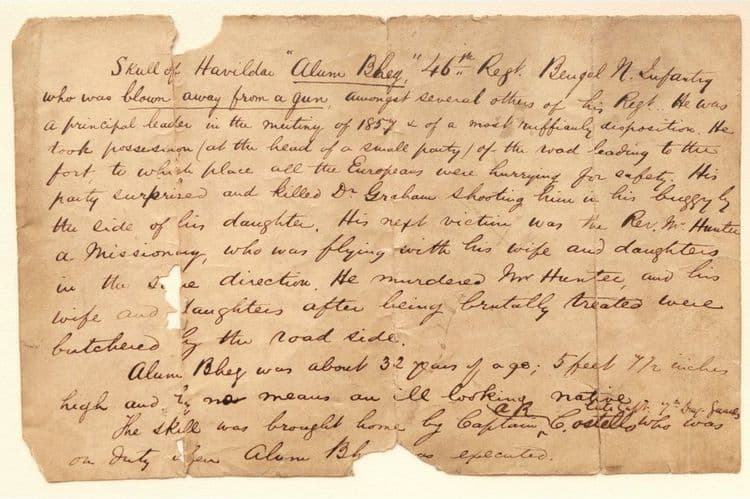 Skull of Havildar "Alum Bheg," 46th Regt. Bengal N. Infantry
who was blown away from a gun, amongst several others of his Regt. He was
a principal leader in the mutiny of 1857 & of a most ruffianly disposition. He
took possession (at the head of a small party) of the road leading to the
fort, to which place all the Europeans were hurrying for safety. His
party surprised and killed Dr. Graham shooting him in his buggy by
the side of his daughter. His next victim was the Rev. Mr. Hunter
a Missionary, who was flying with his wife and daughters
in the same direction. He murdered Mr Hunter, and his
wife and daughters after being brutally treated were
butchered by the road side.
Alum Bheg was about 32 years of age; 5 feet 7 1/2 inches
high and by no means an ill looking native.
The skull was brought home by Captain AR Costello late Capt. 7th Drag. Guards who was
on duty when Alum Bheg was executed.